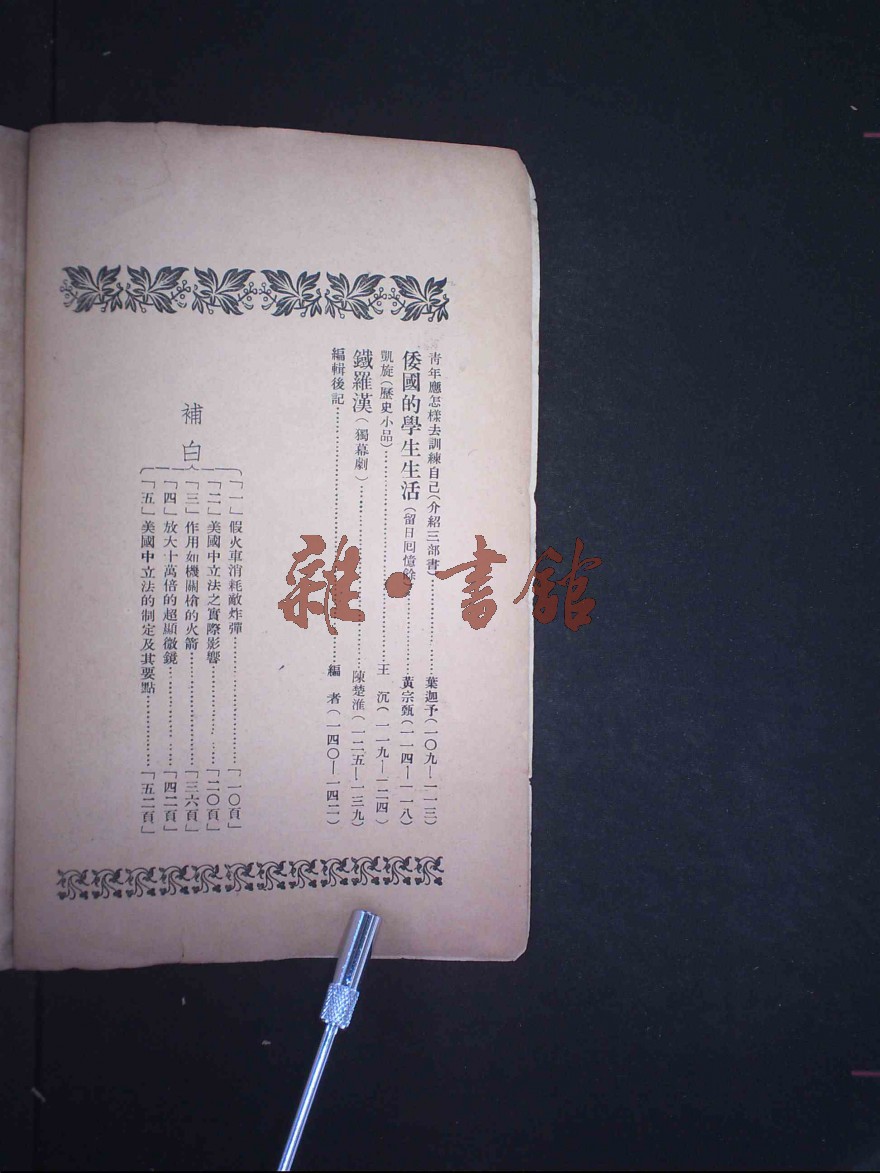 青年應怎樣去訓練自己(介紹三部書)……葉迦予(一〇九—一一三)
倭國的學生生活(留日回憶餘……黃宗甄(一一四—一一八)
凱旋(歷史小品)……王沉(一一九—一二四)
鐵羅漢(獨幕劇)……陳楚淮(一二五—一三九)
編輯後記……編者(一四〇—一四二)
補白
「一」假火車消耗敵炸彈……「一〇頁」
「二」美國中立法之實際影響……「二〇頁」
「三」作用如機關槍的火箭……「三六頁」
「四」放大十萬倍的超顯微鏡……「四二頁」
「五」美國中立法的制定及其要點……「五二頁」
雜·書館